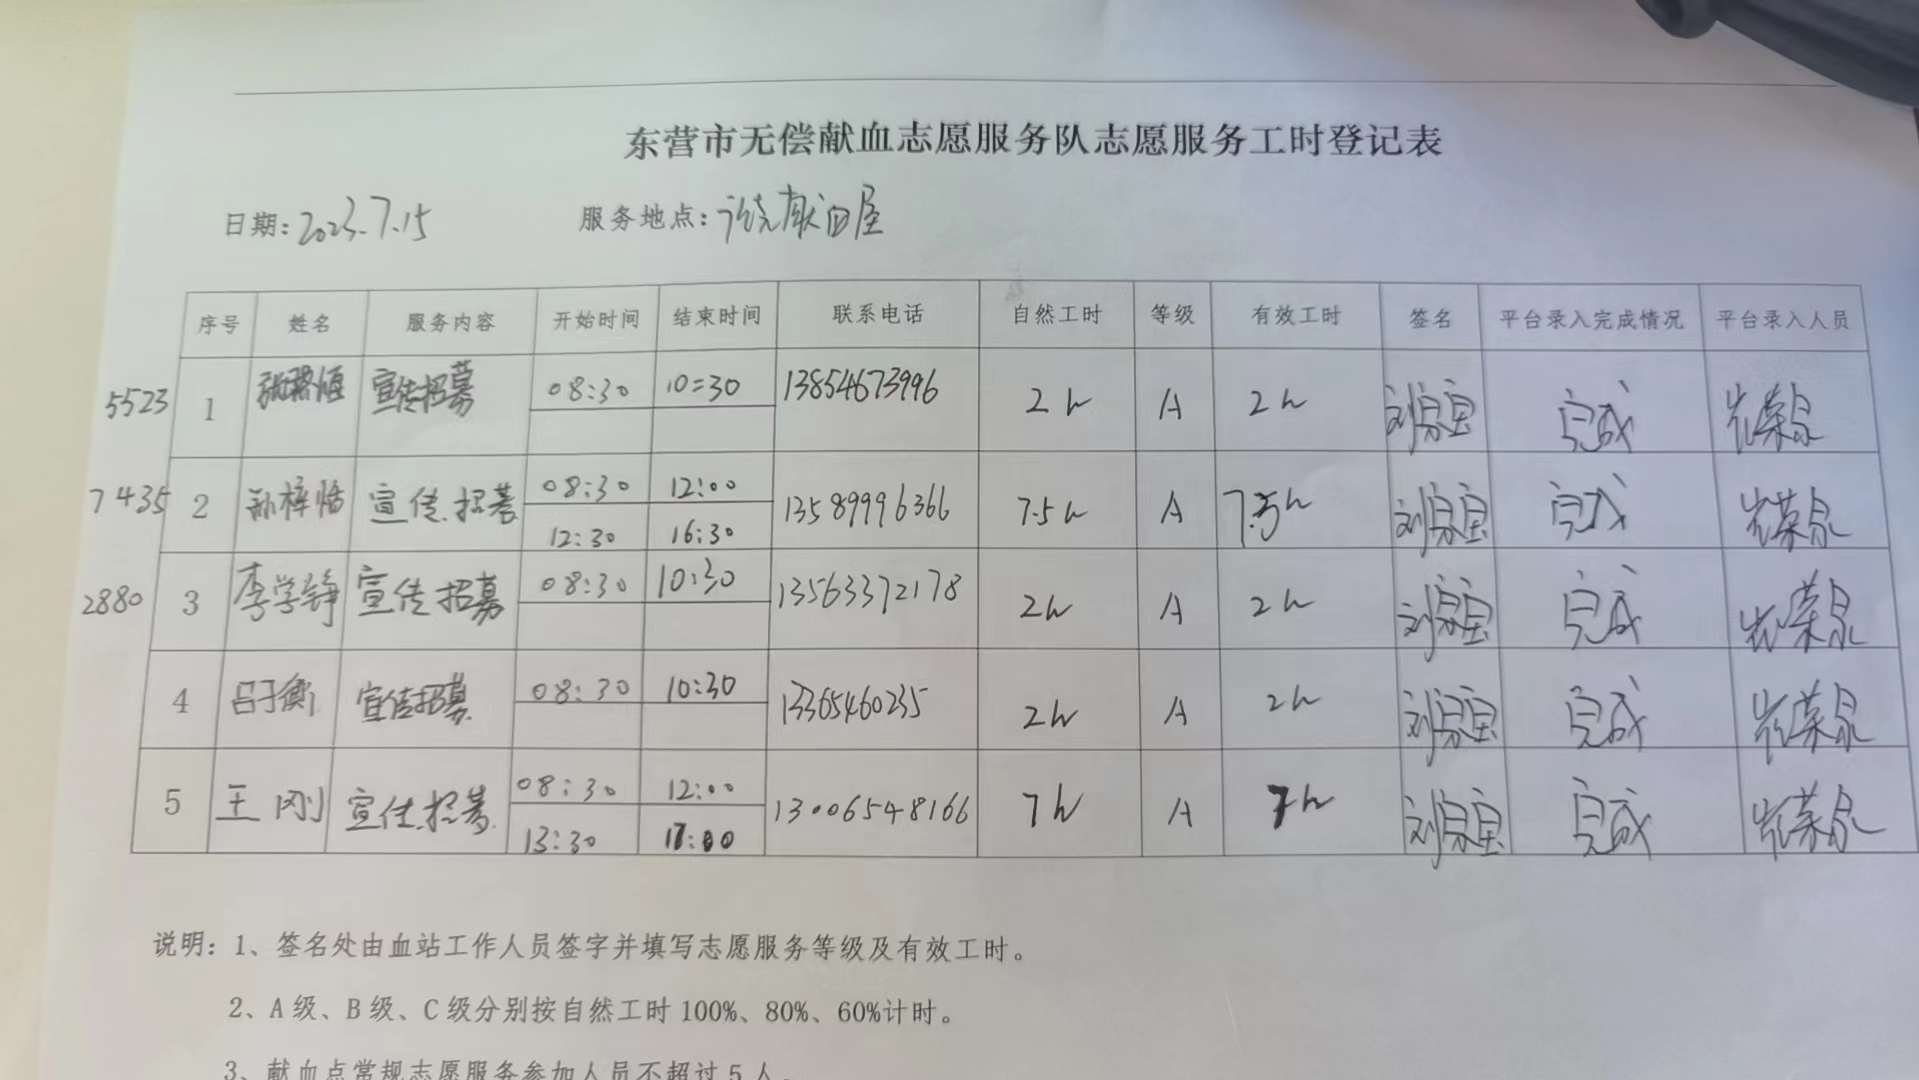 东营市无偿献血志愿服务队志愿服务工时登记表
日期:2023.7.15 服务地点:献血屋
序号 姓名 服务内容 开始时间 结束时间 联系电话 自然工时 等级 有效工时 签名 平台录入完成情况 平台录入人员
5523 1 宣传招募 08:30 10:30 13854673996 2h A 2h 完成
7435 2 孙梓恬 宣传.招募 08:30 12:00 13589996366 7.5h A 7.5h 完成
12:30 16:30
2880 3 李学铮 宣传招募 08:30 10:30 13563372178 2h A 2h 完成
4 吕子衡 宣传招募 08:30 10:30 13365460235 2h A 2h 完成
5 王刚 宣传.招募 08:30 12:00 13006548166 7h A 7h 完成
13:30 17:00
说明:1、签名处由血站工作人员签字并填写志愿服务等级及有效工时。
2、A级、B级、C级分别按自然工时100%、80%、60%计时。
3、献血点常规志愿服务参加人员不超过5人。